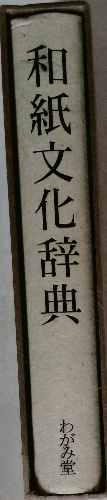 和紙文化辞典
わがみ堂